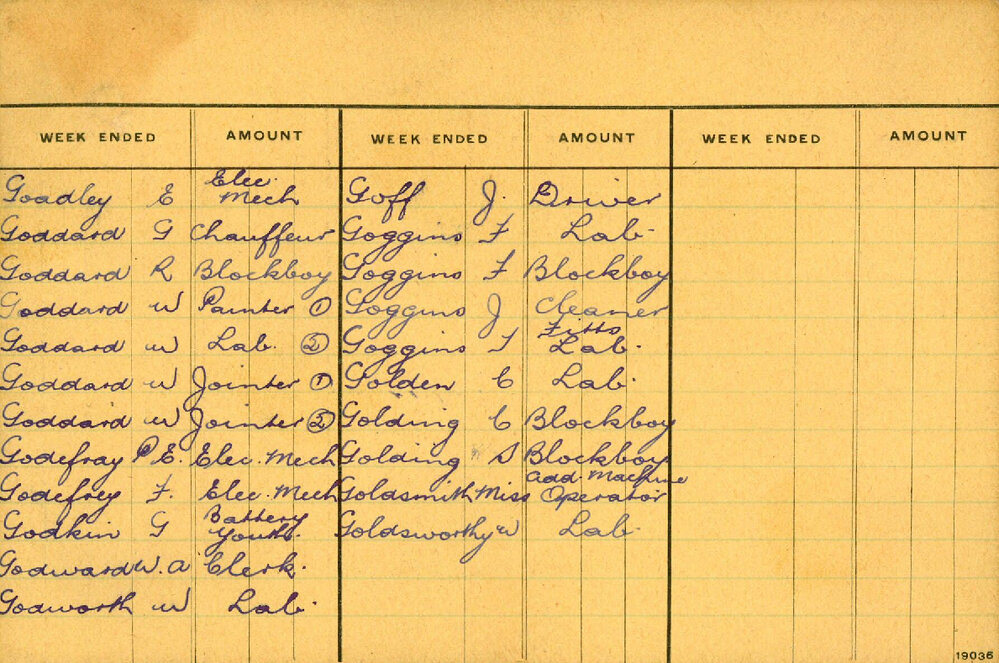 WEEK ENDED AMOUNT WEEK ENDED AMOUNT WEEK ENDED AMOUNT
Goadley E Elec. Mech
Goddard G Chauffeur
Goddard R Blockboy
Goddard W Painter ①
Goddard W Lab. ②
Goddard W Jointer ①
Goddard W Jointer ②
Godefray P.E. Elec. Mech
Godefrey F. Elec. Mech
Godkin G Battery Youth.
Godward W.A Clerk.
Godworth W Lab.
Goff J. Driver
Goggins F Lab.
Goggins F Blockboy
Goggins J Cleaner
Goggins T Fitts Lab.
Golden C Lab.
Golding C Blockboy
Golding S Blockboy
Goldsmith Miss Add. Machine Operator
Goldsworthy W Lab.
19036